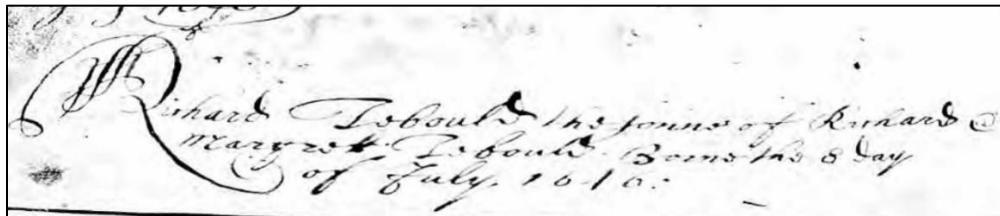 Richard Tebould the sonne of Richard &
Margrett Tebould Borne the 8 day
of July